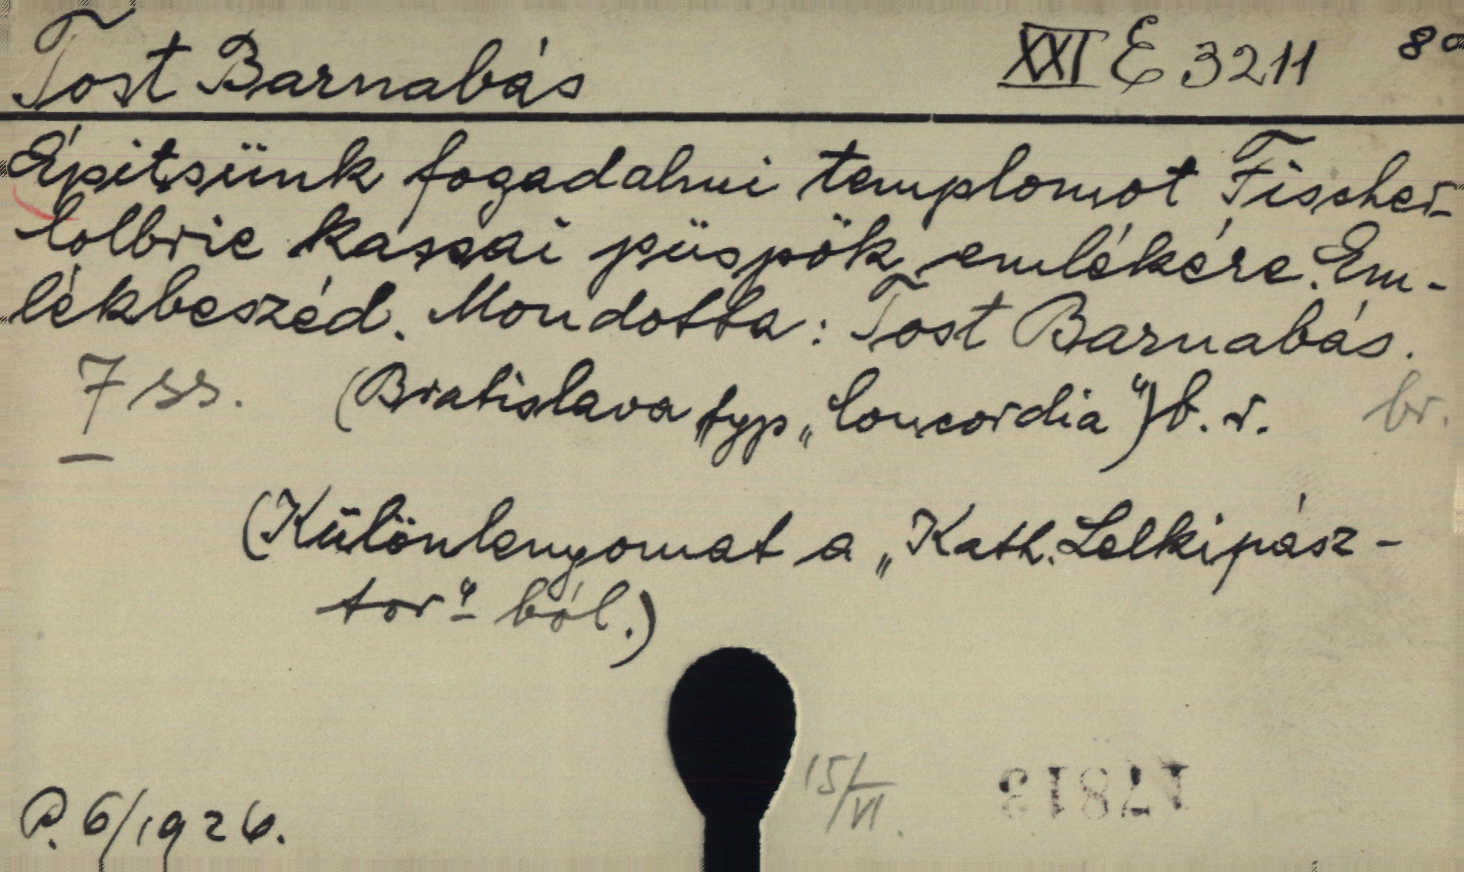 Tost Barnabás XXI E 3211 8°
Épitsünk fogadalmi templomot Fischer-
Colbrie kassai püspök emlékére. Em-
lékbeszéd. Mondotta: Tost Barnabás.
7 ss. (Bratislava typ „Concordia") é. n. br.
(Különlenyomat a „Kath. Lelkipász-
tor"-ból.)
15/VI.
P. 6/1926.